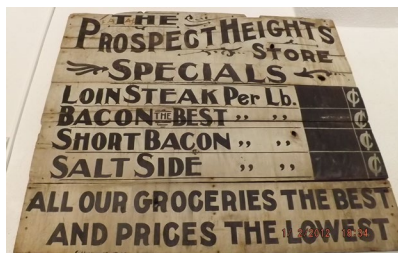 THE
PROSPECT HEIGHTS
STORE
SPECIALS
LOIN STEAK Per Lb. ¢
BACON THE BEST ,, ,, ¢
SHORT BACON ,, ,, ¢
SALT SIDE ,, ,, ¢
ALL OUR GROCERIES THE BEST
AND PRICES THE LOWEST